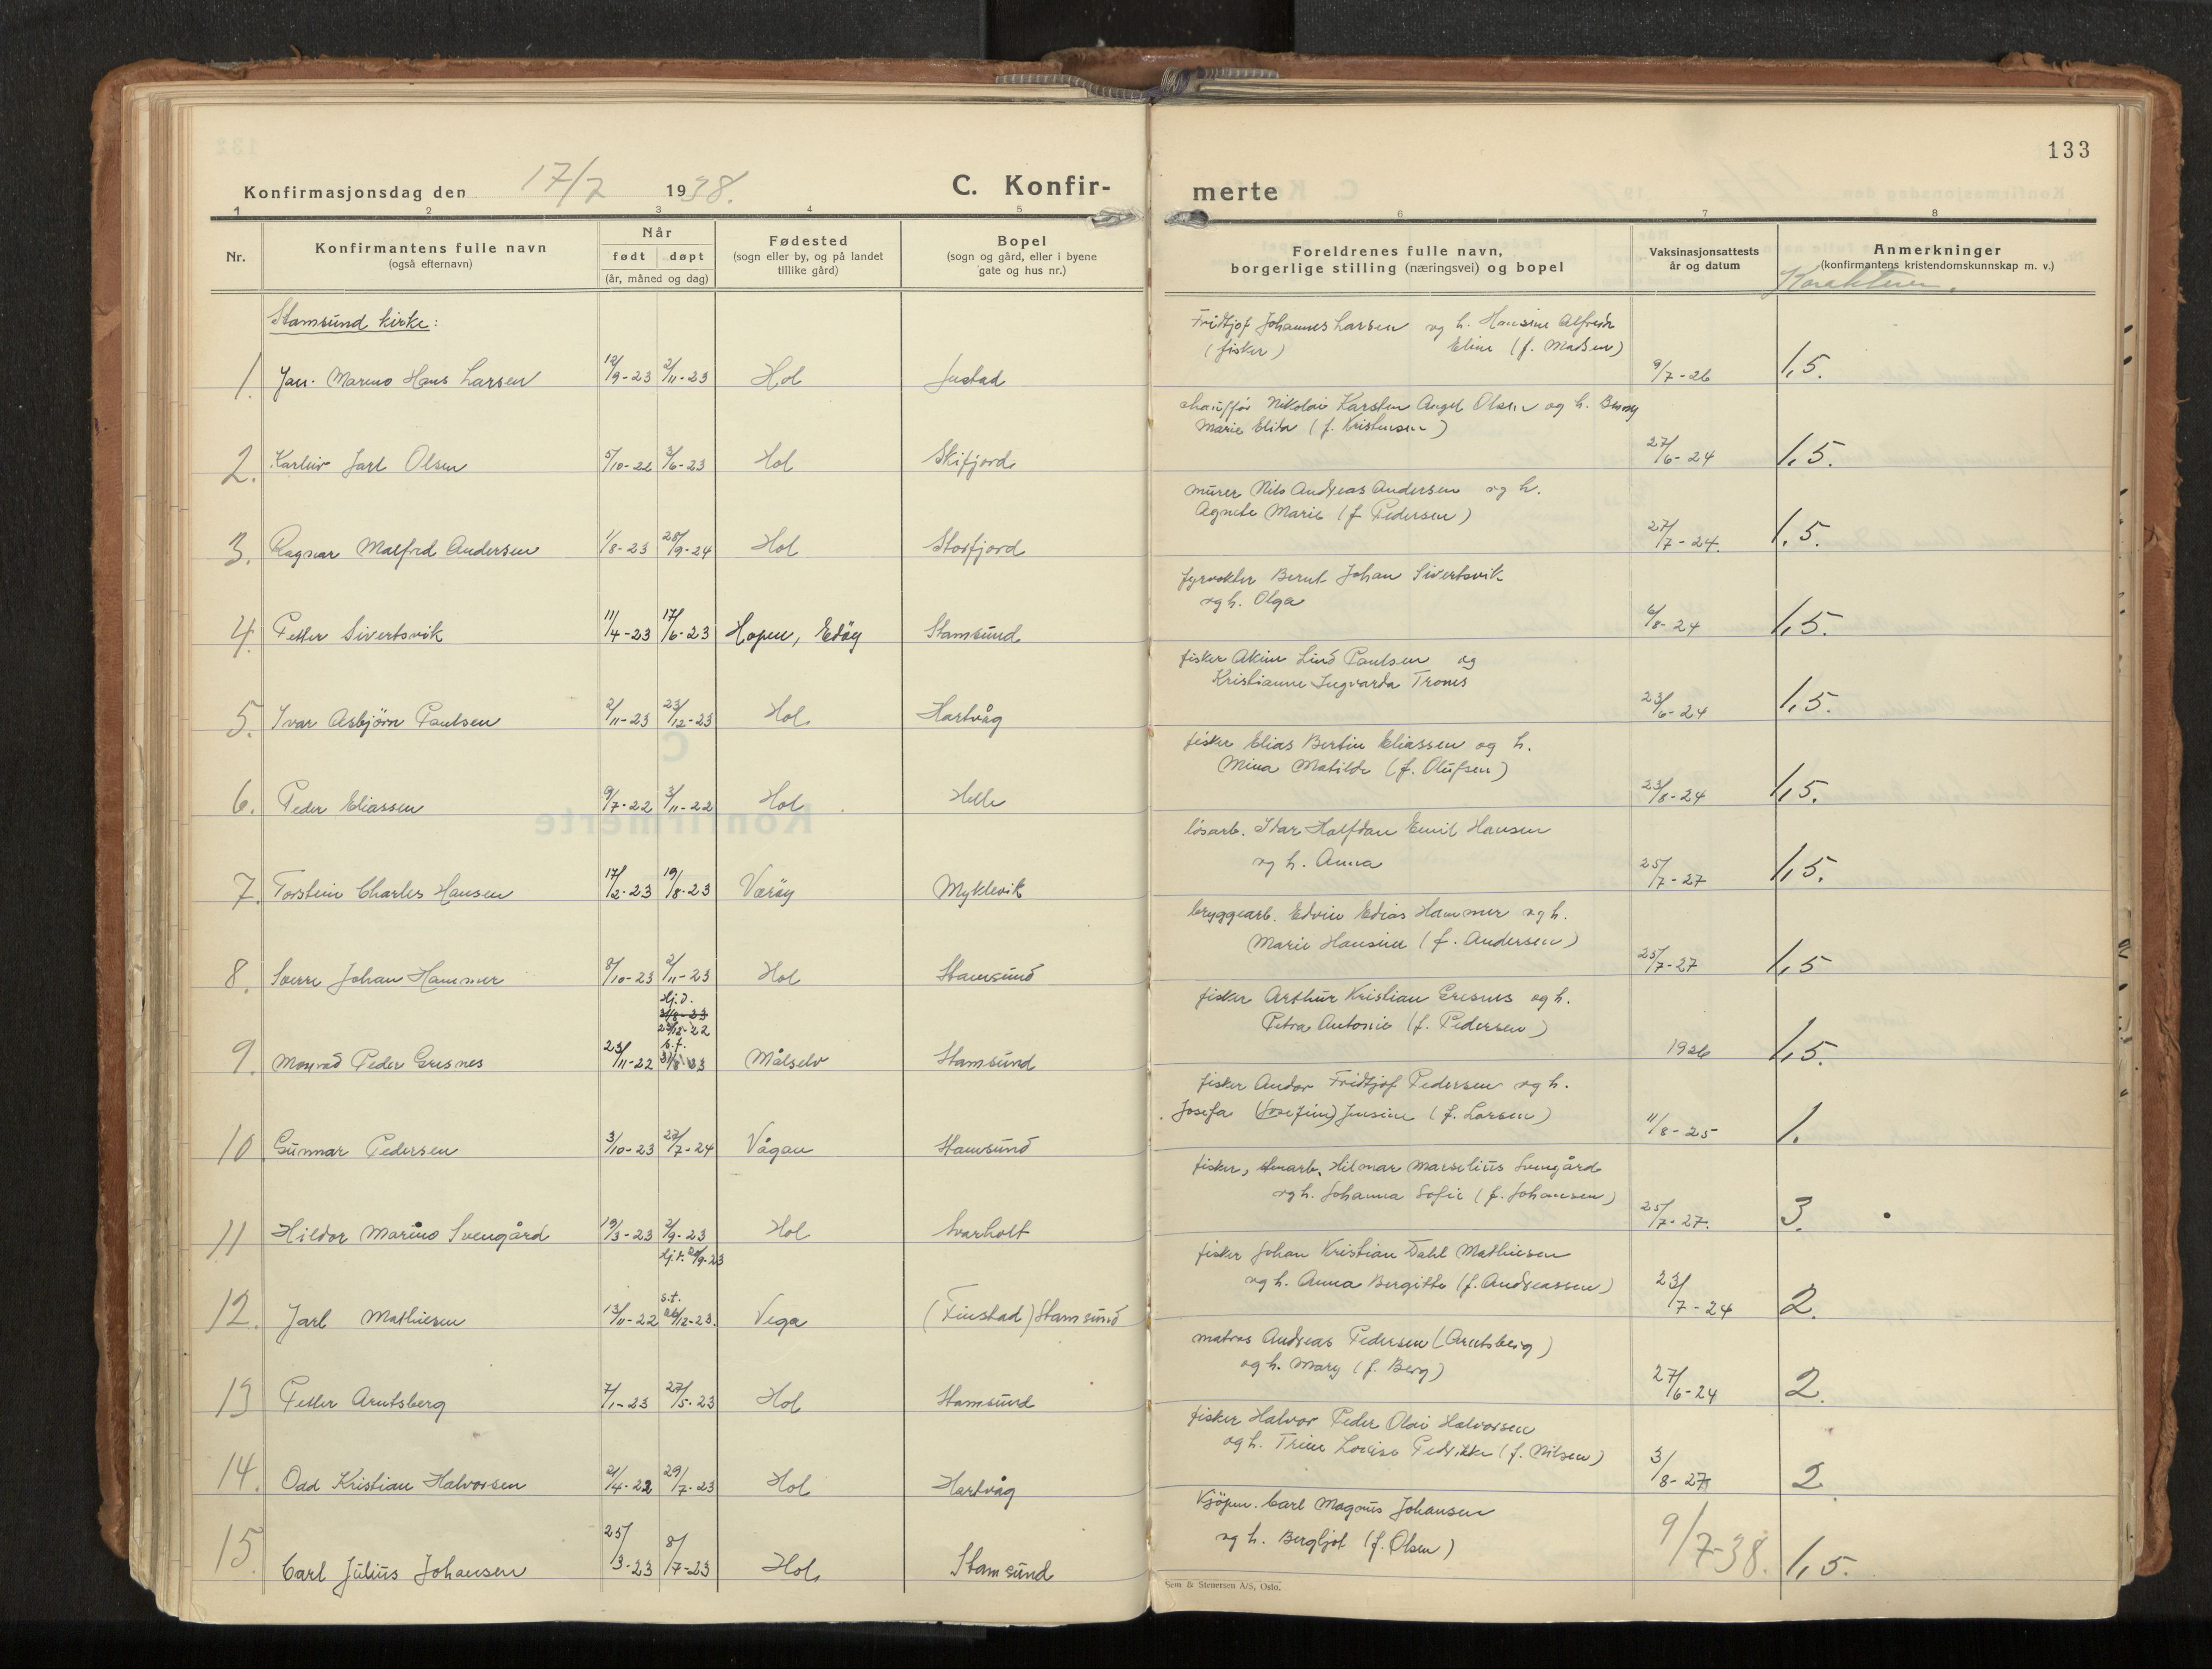 133
Konfirmasjonsdag den 17/7 1938.
C. Konfir-
merte
1 2 3 4 5 6 7 8
Nr.
Konfirmantens fulle navn
(også efternavn)
Når
født døpt
(år, måned og dag)
Fødested
(sogn eller by, og på landet
tillike gård)
Bopel
(sogn og gård, eller i byene
gate og hus nr.)
Foreldrenes fulle navn,
borgerlige stilling (næringsvei) og bopel
Vaksinasjonsattests
år og datum
Anmerkninger
(konfirmantens kristendomskunnskap m. v.)
Karakterer.
Stamsund kirke:
Fridtjof Johannes Larsen og h. Hansine Alfreda
(fisker) Eline (f. Madsen)
1. Jan Marino Hans Larsen 12/9-23 2/11-23 Hol Justad 9/7-26 1,5.
chauffør Nikolai Karsten Angel Olsen og h. Benny
Marie Elida (f. Kristensen)
2. Karleiv Jarl Olsen 5/10-22 3/6-23 Hol Skifjord 27/6-24 1,5.
murer Nils Andreas Andersen og h.
Agnete Marie (f. Pedersen)
3. Ragnar Malfred Andersen 1/8-23 28/9-24 Hol Storfjord 27/7-24. 1,5.
fyrvokter Bernt Johan Sivertsvik
og h. Olga
4. Petter Sivertsvik 11/4-23 17/6-23 Hopen, Edøy Stamsund 6/8-24 1,5.
fisker Akim Lind Paulsen og
Kristianne Ingvarda Trones
5. Ivar Asbjørn Paulsen 2/11-23 23/12-23 Hol Hartvåg 23/6-24 1,5.
fisker Elias Bertin Eliassen og h.
Mina Matilde (f. Olufsen)
6. Peder Eliassen 9/7-22 3/11-22 Hol Helle 23/8-24 1,5.
løsarb. Idar Halfdan Emil Hansen
og h. Anna
7. Torstein Charles Hansen 17/2-23 19/8-23 Værøy Myklevik 25/7-27 1,5.
bryggearb. Edvin Edias Hammer og h.
Marie Hansine (f. Andersen)
8. Sverre Johan Hammer 8/10-23 2/11-23 Hol Stamsund 25/7-27 1,5
fisker Arthur Kristian Gresnes og h.
Petra Antonie (f. Pedersen)
hj.d.
31/8-23
28/12-22
s.f.
9. Monrad Peder Gresnes 23/11-22 31/8 23 Målselv Stamsund 1926 1,5.
fisker Andor Fridtjof Pedersen og h.
Josefa (Josefine) Jensine (f. Larsen)
10 Gunnar Pedersen 3/10-23 27/7-24 Vågan Stamsund 11/8-25 1.
fisker, stenarb. Hilmar Marselius Svengård
og h. Johanna Sofie (f. Johansen)
11 Hildor Marino Svengård 19/3-23 2/9-23 Hol Svarholt 25/7-27. 3.
fisker Johan Kristian Dahl Mathiesen
og h. Anna Bergitte (f. Andreassen)
hj.d. 20/9-23
s.t.
12. Jarl Mathiesen 13/11-22 26/12-23. Vega (Finstad) Stamsund 23/7-24 2.
matros Andreas Pedersen (Arntsberg)
og h. Mary (f. Berg)
13 Petter Arntsberg 7/1-23 27/5-23 Hol Stamsund 27/6-24 2.
fisker Halvor Peder Olai Halvorsen
og h. Trine Lovise Pedrikke (f. Nilsen)
14. Odd Kristian Halvorsen 21/4-22 29/7-23 Hol Hartvåg 3/8-27 2.
Kjøpm. Carl Magnus Johansen
og h. Bergljot (f. Olsen)
15. Carl Julius Johansen 25/3-23 8/7-23 Hol Stamsund 9/7-38. 1,5.
Sem & Stenersen A/S, Oslo.